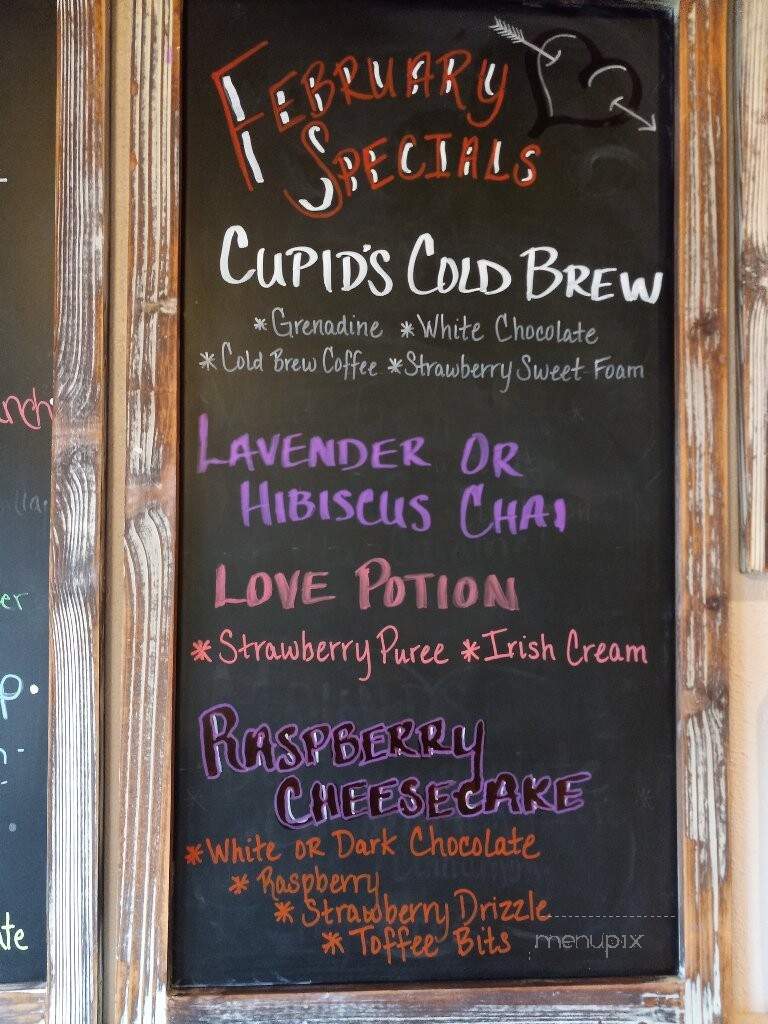 February
Specials
Cupid's Cold Brew
*Grenadine *White Chocolate
*Cold Brew Coffee *Strawberry Sweet Foam
Lavender or
Hibiscus Chai
Love Potion
*Strawberry Puree *Irish Cream
Raspberry
Cheesecake
*White or Dark Chocolate
*Raspberry
*Strawberry Drizzle
*Toffee Bits
menupix